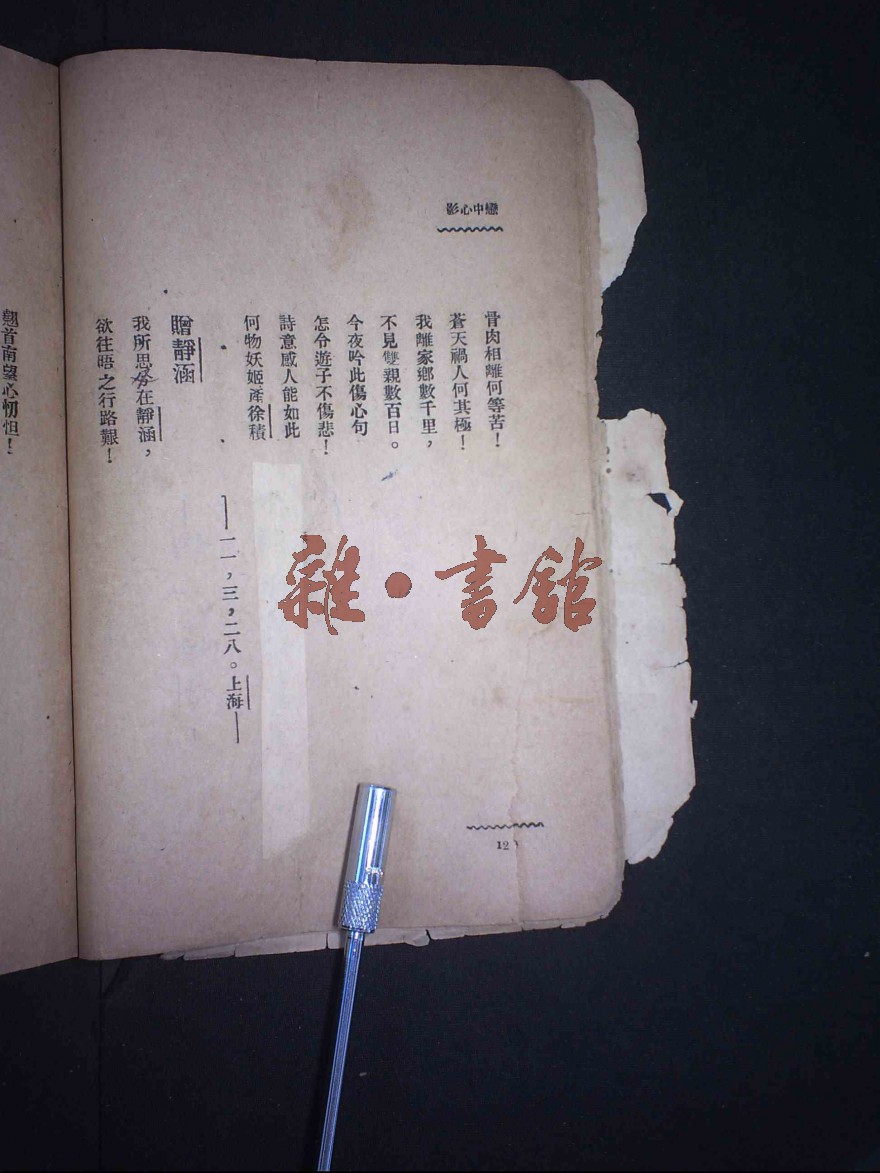 戀中心影
骨肉相離何等苦！
蒼天禍人何其極！
我離家鄉數千里，
不見雙親數百日。
今夜吟此傷心句
怎令遊子不傷悲！
詩意感人能如此
何物妖姬產徐積
——一一，三，二八。上海——
贈靜涵
我所思兮在靜涵，
欲往晤之行路艱！
翹首南望心忉怛！
12
雜·書館